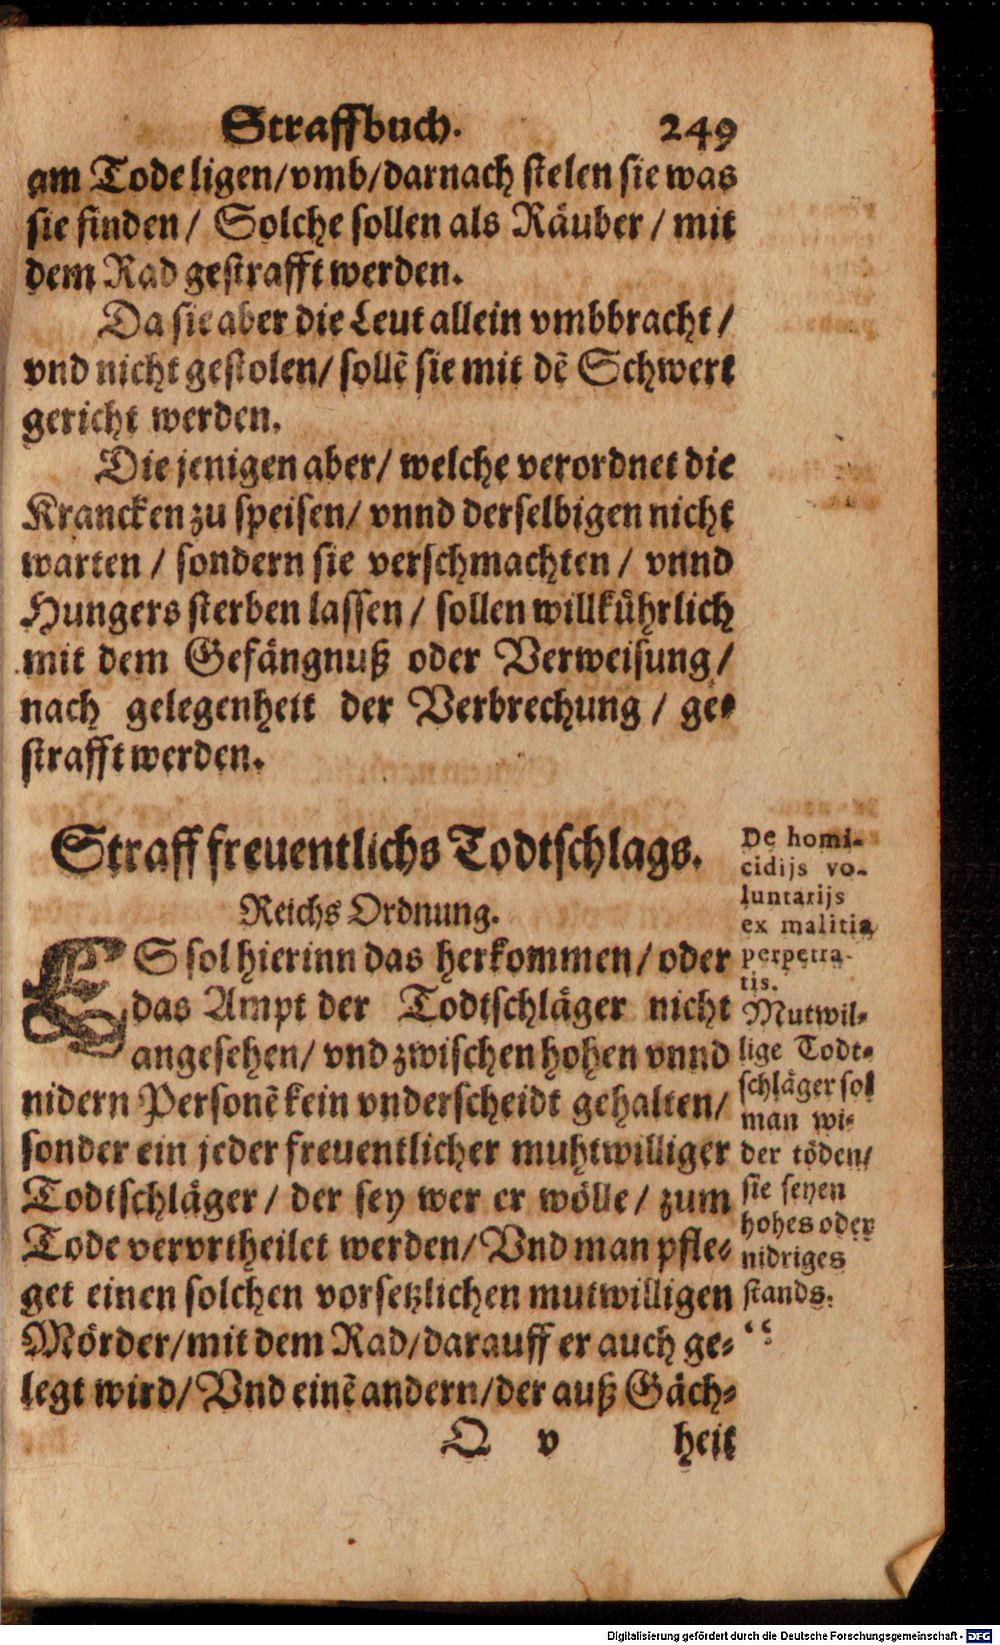 Straffbuch. 249
am Tode ligen/vmb/darnach stelen sie was
sie finden/ Solche sollen als Räuber/ mit
dem Rad gestrafft werden.
Da sie aber die Leut allein vmbbracht/
vnd nicht gestolen/ sollē sie mit dē Schwert
gericht werden.
Die jenigen aber/ welche verordnet die
Krancken zu speisen/ vnnd derselbigen nicht
warten/ sondern sie verschmachten/ vnnd
Hungers sterben lassen/ sollen willkührlich
mit dem Gefängnuß oder Verweisung/
nach gelegenheit der Verbrechung/ ge-
strafft werden.
Straff freuentlichs Todtschlags.
Reichs Ordnung.
ES sol hierinn das herkommen/ oder
das Ampt der Todtschläger nicht
angesehen/ vnd zwischen hohen vnnd
nidern Personē kein vnderscheidt gehalten/
sonder ein jeder freuentlicher muhtwilliger
Todtschläger/ der sey wer er wölle/ zum
Tode vervrtheilet werden/ Vnd man pfle-
get einen solchen vorsetzlichen mutwilligen
Mörder/mit dem Rad/darauff er auch ge-
legt wird/ Vnd einē andern/der auß Gäch-
Q v heit
De homi-
cidijs vo-
luntarijs
ex malitia
perpetra-
tis.
Mutwil-
lige Todt-
schläger sol
man wi-
der töden/
sie seyen
hohes oder
nidriges
stands.
Digitalisierung gefördert durch die Deutsche Forschungsgemeinschaft - DFG